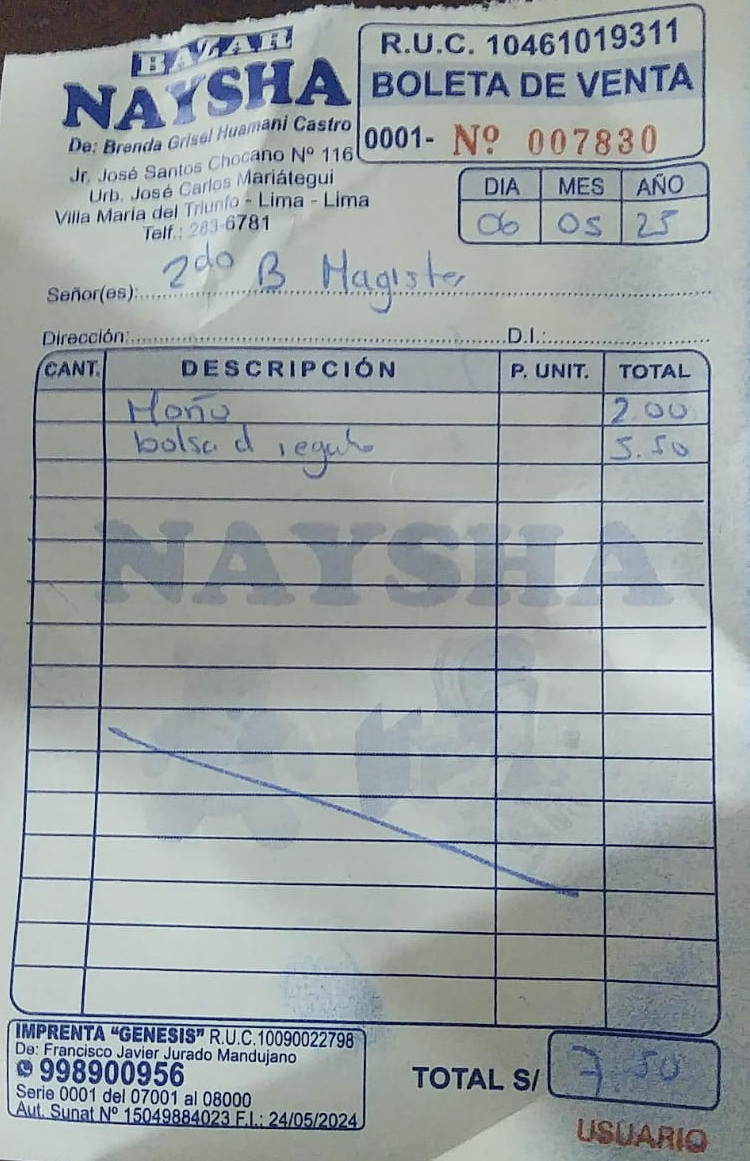 BAZAR
NAYSHA
De: Brenda Grisel Huamani Castro
Jr. José Santos Chocano Nº 116
Urb. José Carlos Mariátegui
Villa Maria del Triunfo - Lima - Lima
Telf.: 283-6781
R.U.C. 10461019311
BOLETA DE VENTA
0001- Nº 007830
DIA MES AÑO
06 05 25
Señor(es): 2do B Magister
Dirección: D.I.:
CANT. DESCRIPCIÓN P. UNIT. TOTAL
Moño 2.00
bolsa d regalo 5.50
NAYSHA
IMPRENTA "GENESIS" R.U.C.10090022798
De: Francisco Javier Jurado Mandujano
998900956
Serie 0001 del 07001 al 08000
Aut. Sunat Nº 15049884023 F.I.: 24/05/2024
TOTAL S/ 7.50
USUARIO